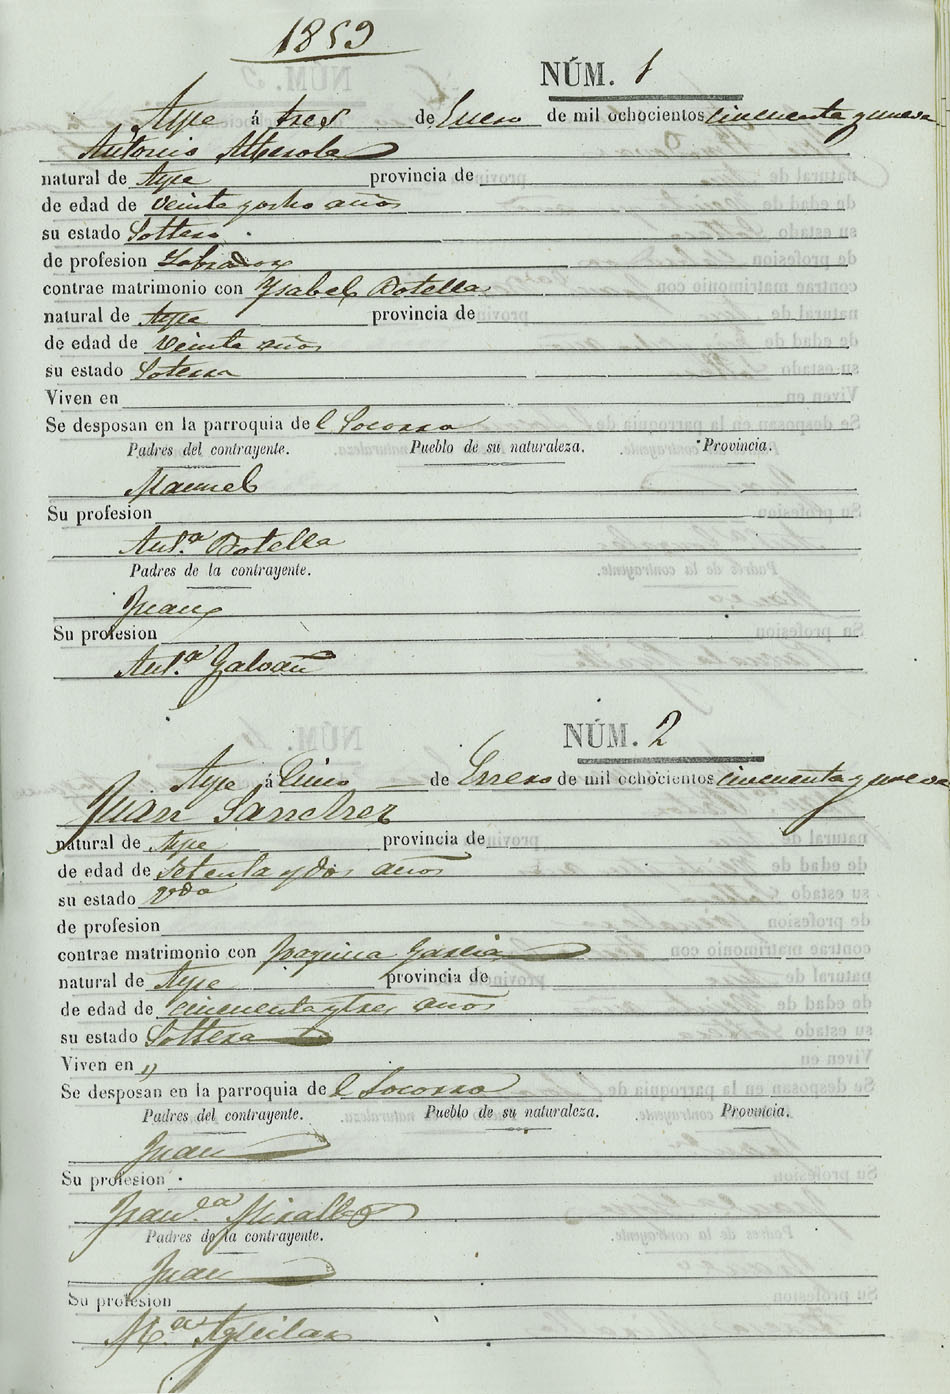 1859
NÚM. 1
Aspe á tres de Enero de mil ochocientos cincuenta y nueve
Antonio Alberola
natural de Aspe provincia de
de edad de veinte y ocho años
su estado Soltero
de profesion Labrador
contrae matrimonio con Ysabel Botella
natural de Aspe provincia de
de edad de veinte años
su estado Soltera
Viven en
Se desposan en la parroquia del Socorro
Padres del contrayente. Pueblo de su naturaleza. Provincia.
Manuel
Su profesion
Ant.ª Botella
Padres de la contrayente.
Juan
Su profesion
Ant.ª Galvañ
NÚM. 2
Aspe á Cinco de Enero de mil ochocientos cincuenta y nueve
Juan Sanchez
natural de Aspe provincia de
de edad de Setenta y dos años
su estado Vdo
de profesion
contrae matrimonio con Joaquina Garcia
natural de Aspe provincia de
de edad de cincuenta y tres años
su estado Soltera
Viven en "
Se desposan en la parroquia del Socorro
Padres del contrayente. Pueblo de su naturaleza. Provincia.
Juan
Su profesion
Fran.ca Miralles
Padres de la contrayente.
Juan
Su profesion
M.ª Aguilar